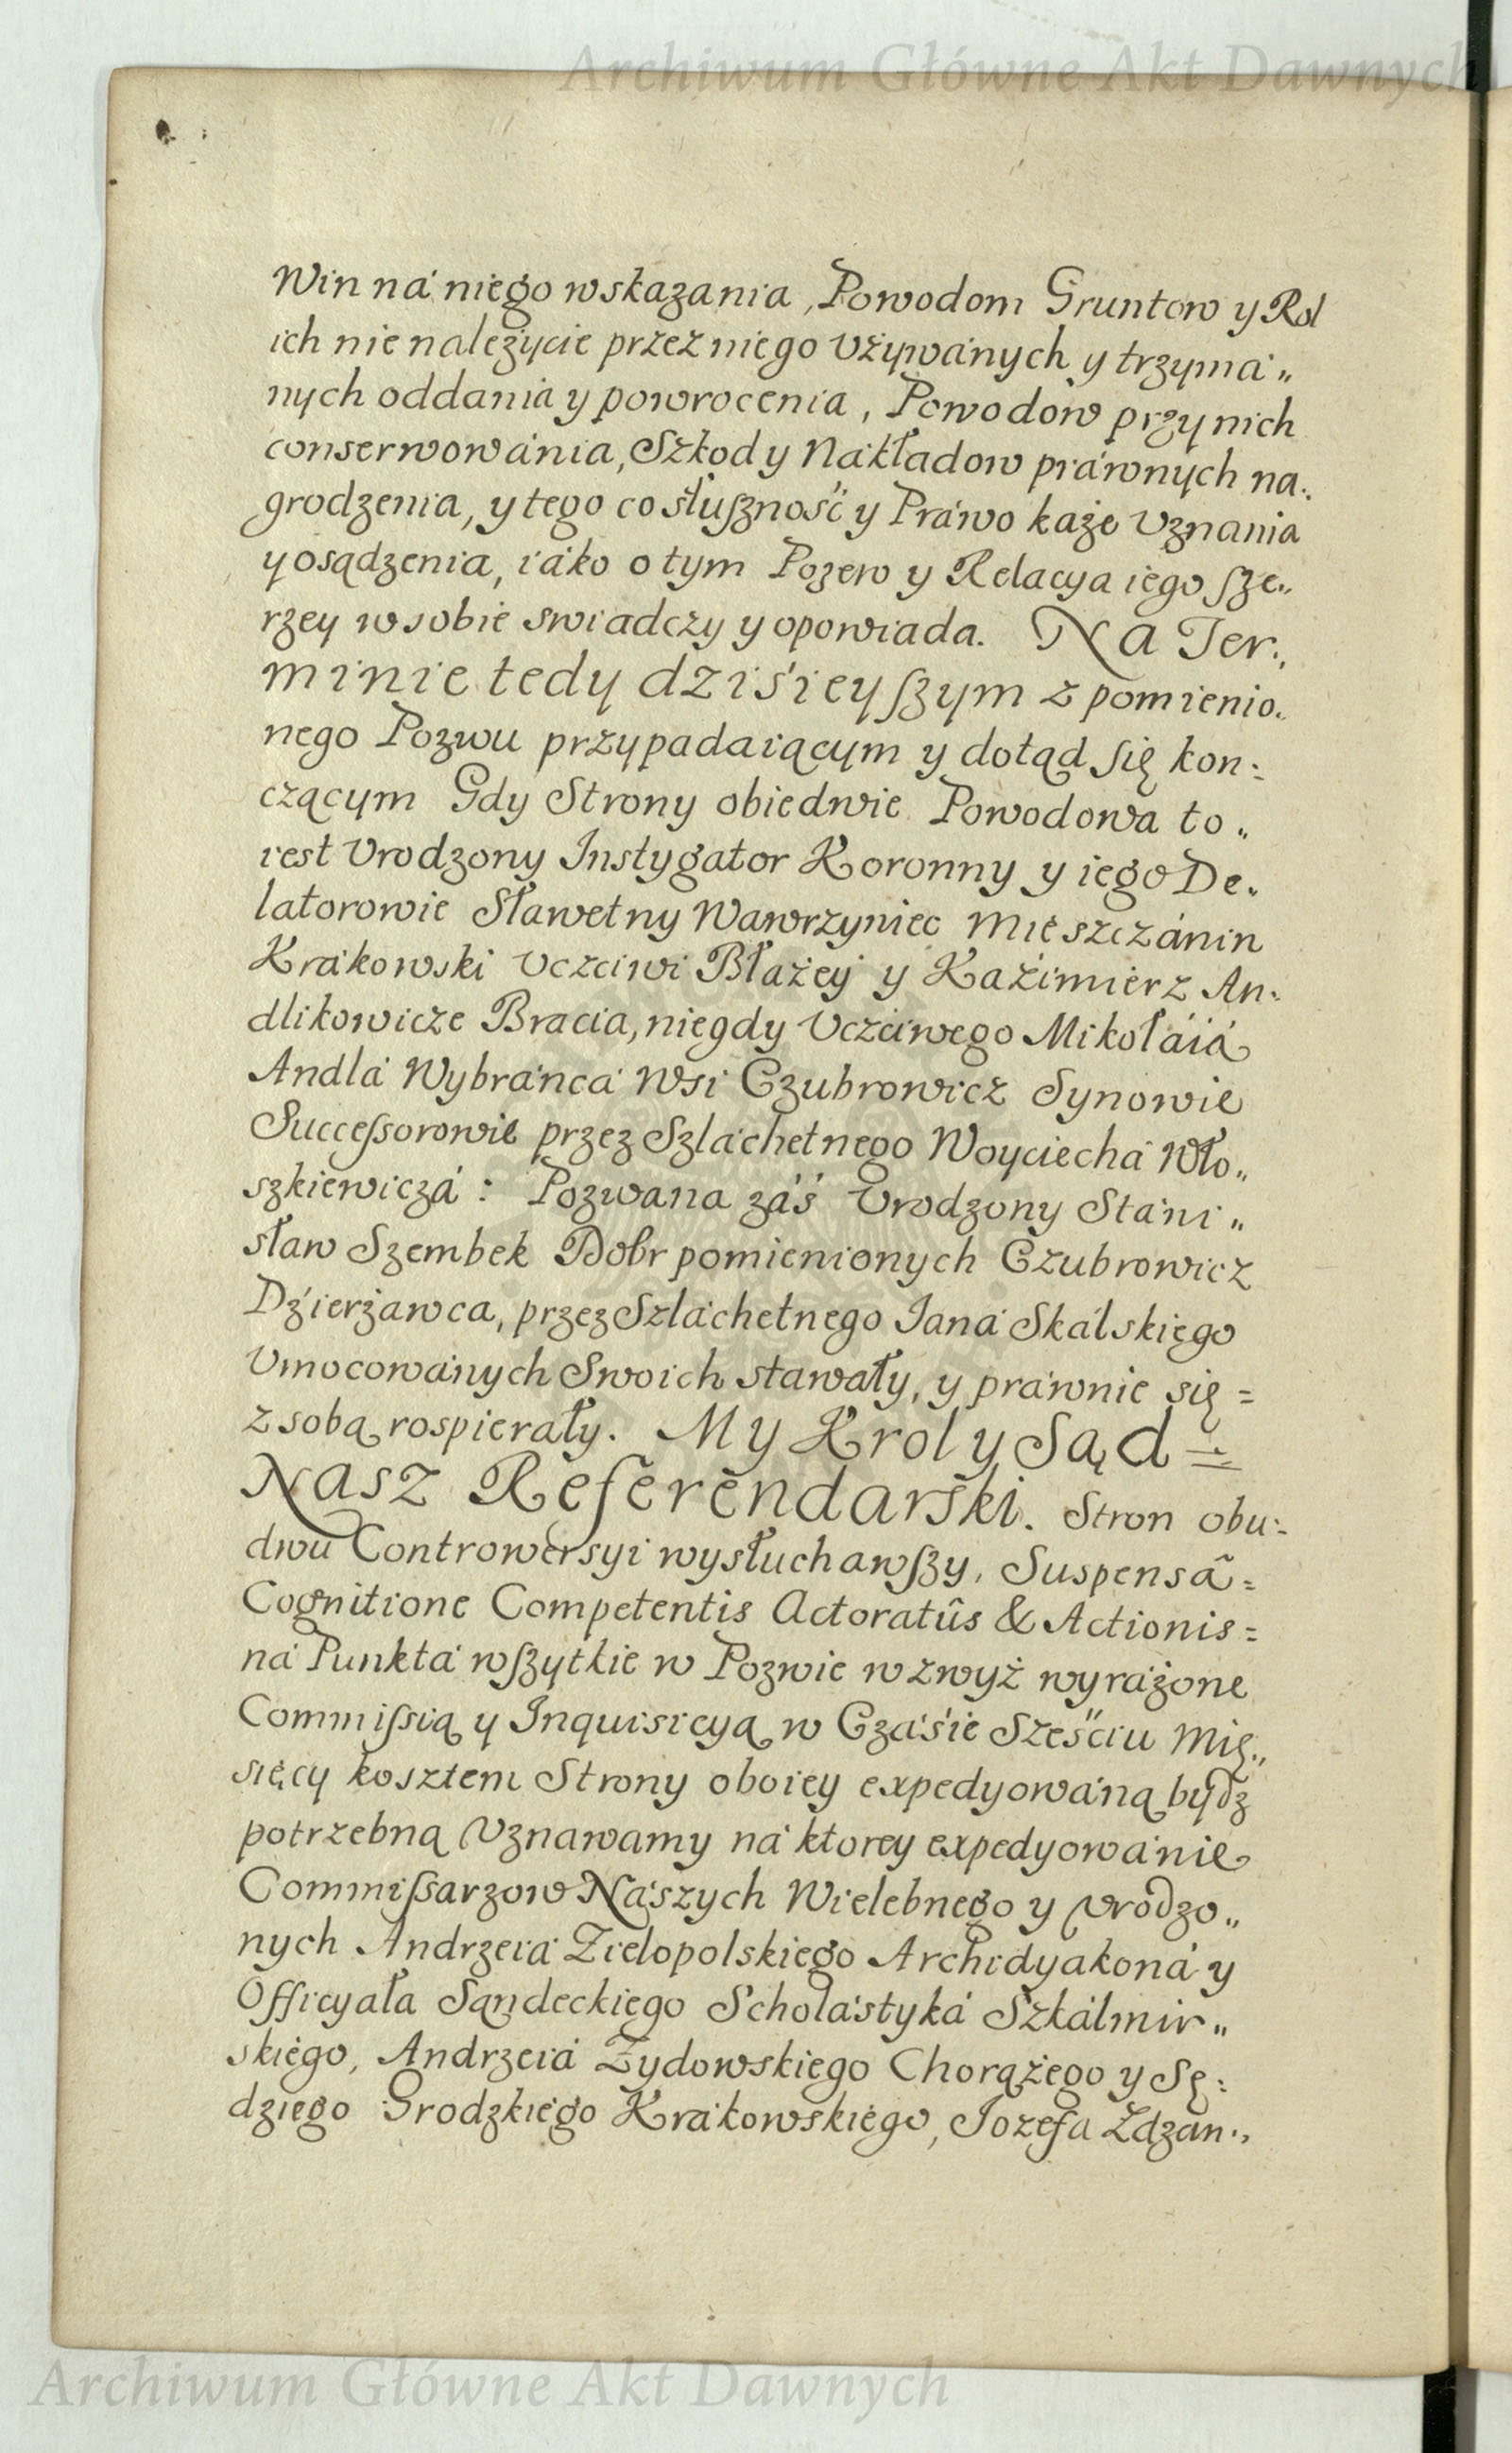 Archiwum Główne Akt Dawnych
Win ná niego wskazania, Powodom Gruntow y Rol
ich nie należycie przez niego vżywánych y trzymá„
nych oddania y powrocenia, Powodow przy nich
conserwowánia, Szkod y Nákładow práwnych na„
grodzenia, y tego co słuſzność y Práwo każe vznania
y osądzenia, iáko o tym Pozew y Relacya iego ſze„
rzey w sobie swiadczy y opowiada. Na Ter„
minie tedy dziśieyſzym z pomienio„
nego Pozwu przypadaiącym y dotąd się kon=
czącym Gdy Strony obiedwie Powodowa to„
iest Vrodzony Instygator Koronny y iego De„
latorowie Sławetny Wawrzyniec Mieszczánin
Krákowski Vczciwi Błażey y Kaźimierz An„
dlikowicze Bracia, niegdy Vczciwego Mikołáiá
Andlá Wybráncá Wsi Czubrowicz Synowie
Succeſsorowie przez Szláchetnego Woyciechá Wło„
szkiewiczá: Pozwana záś Vrodzony Stáni„
sław Szembek Dobr pomienionych Czubrowicz
Dźierżawca, przez Szláchetnego Janá Skálskiego
Vmocowánych Swoich stawały, y práwnie się =
z sobą rospierały. My Krol y Sąd =
Nasz Referendarski. Stron obu=
dwu Controwersyi wysłuchawſzy, Suspensâ =
Cognitione Competentis Actoratûs & Actionis =
ná Punktá wſzytkie w Pozwie wzwyż wyrażone
Commiſsią y Inquisicyą w Czáśie Sześciu Mie„
sięcy kosztem Strony oboiey expedyowáną bydź
potrzebną Vznawamy ná ktorey expedyowánie
Commiſsarzow Nászych Wielebnego y Vrodzo„
nych Andrzeiá Zielopolskiego Archidyakoná y
Officyała Sandeckiego Scholástyká Szkálmir„
skiego, Andrzeiá Zydowskiego Chorążego y Sę=
dziego Grodzkiego Krákowskiego, Jozefa Zdzan„
Archiwum Główne Akt Dawnych